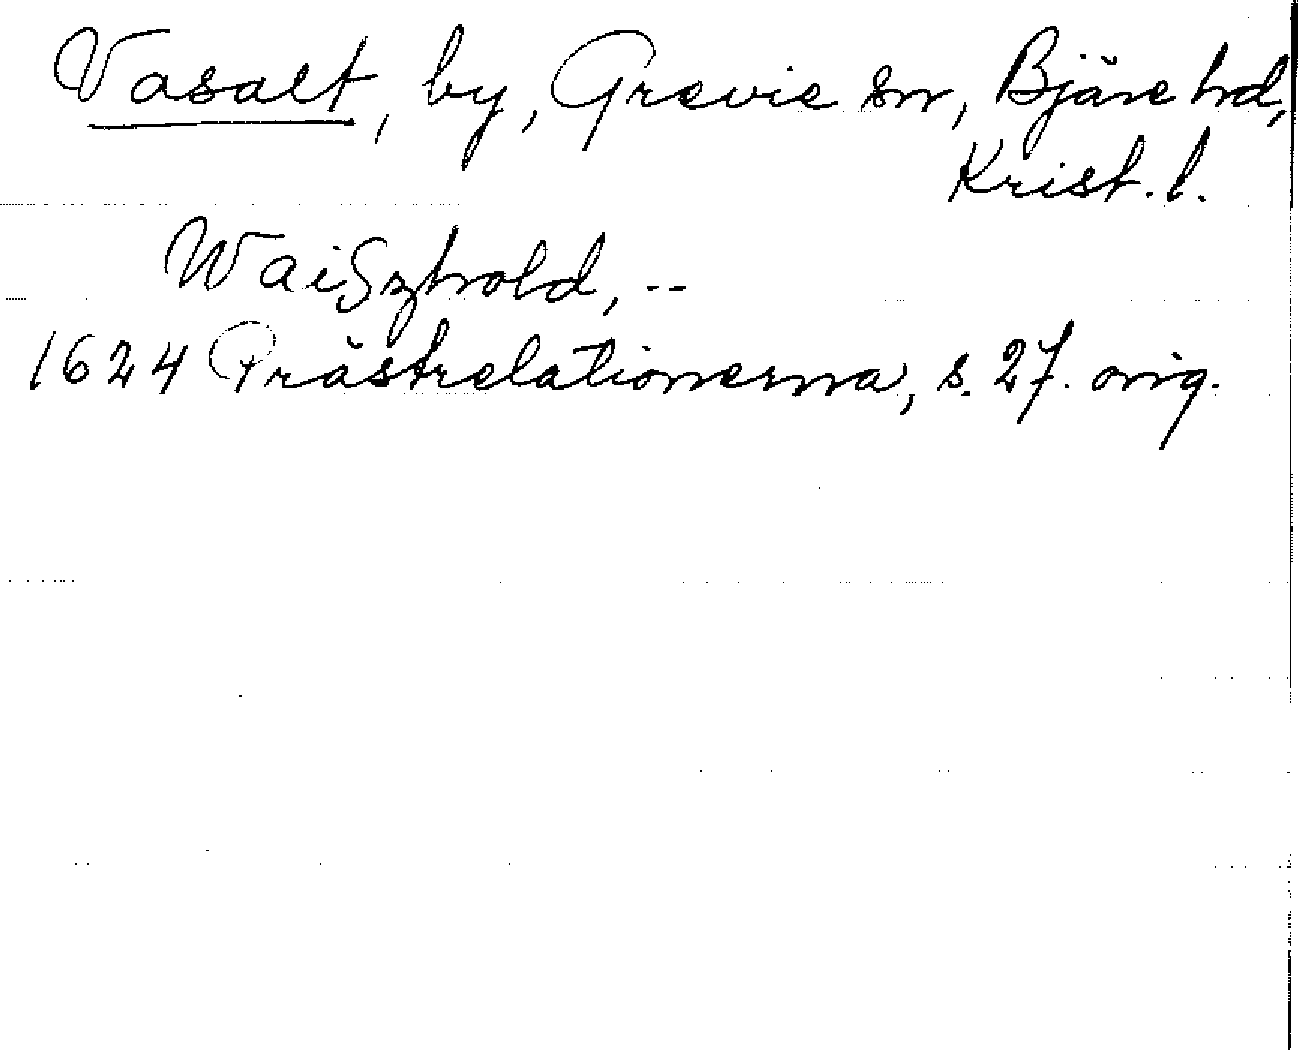 Vasalt, by, Grevie sn, Bjäre hd,
Krist. l.
WaiSzhold, --
1624 Prästrelationerna, s. 27. orig.